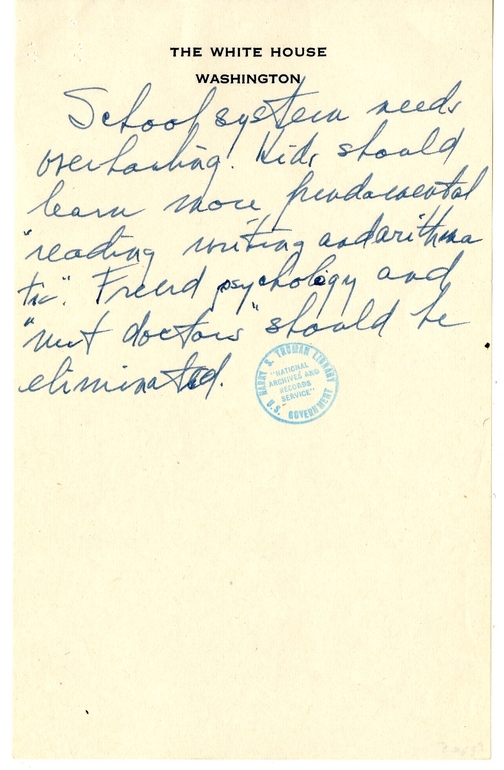 THE WHITE HOUSE
WASHINGTON
School system needs
overhauling. Kids should
learn more fundamental
"reading writing and arithma
tic". Freud psychology and
"nut doctors" should be
eliminated.
HARRY S. TRUMAN LIBRARY
"NATIONAL
ARCHIVES AND
RECORDS
SERVICE"
U.S. GOVERNMENT